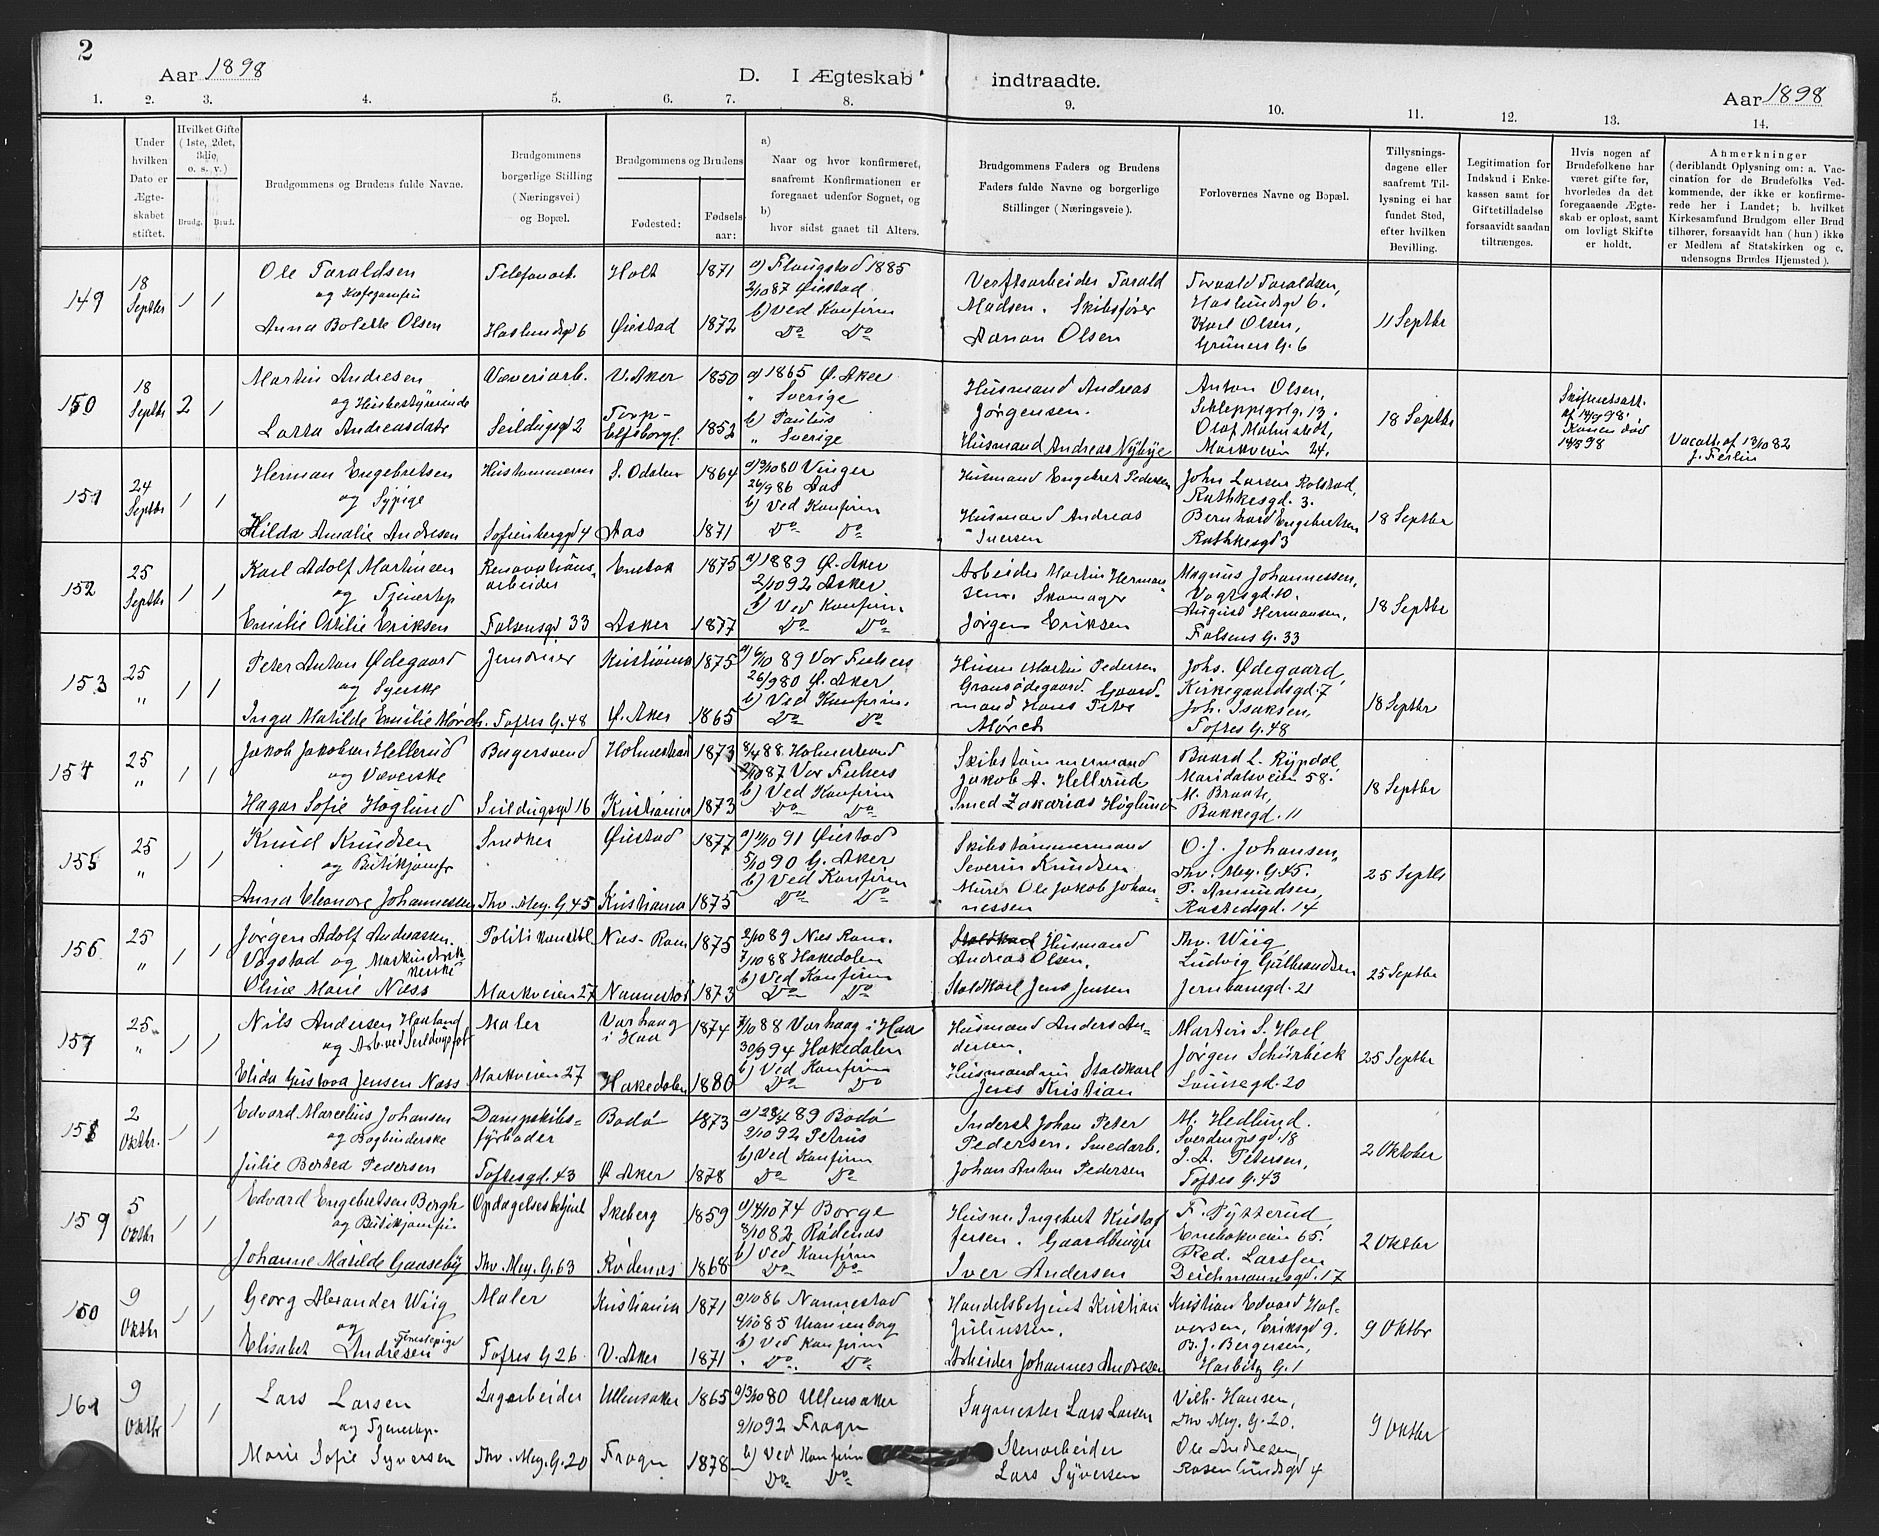 2
Aar 1898
D. I Ægteskab indtraadte.
Aar 1898
1. 2. 3. 4. 5. 6. 7. 8. 9. 10. 11. 12. 13. 14.
Under hvilken Dato er Ægteskabet stiftet.
Hvilket Gifte (1ste, 2det, 3die o. s. v.)
Brudg. Brud.
Brudgommens og Brudens fulde Navne.
Brudgommens borgerlige Stilling (Næringsvei) og Bopæl.
Brudgommens og Brudens
Fødested: Fødselsaar:
a) Naar og hvor konfirmeret, saafremt Konfirmationen er foregaaet udenfor Sognet, og
b) hvor sidst gaaet til Alters.
Brudgommens Faders og Brudens Faders fulde Navne og borgerlige Stillinger (Næringsveie).
Forlovernes Navne og Bopæl.
Tillysningsdagene eller saafremt Tillysning ei har fundet Sted, efter hvilken Bevilling.
Legitimation for Indskud i Enkekassen samt for Giftetilladelse forsaavidt saadan tiltrænges.
Hvis nogen af Brudefolkene har været gifte før, hvorledes da det foregaaende Ægteskab er opløst, samt om lovligt Skifte er holdt.
Anmerkninger (deriblandt Oplysning om: a. Vaccination for de Brudefolks Vedkommende, der ikke er konfirmerede her i Landet; b. hvilket Kirkesamfund Brudgom eller Brud tilhører, forsaavidt han (hun) ikke er Medlem af Statskirken og c. udensogns Brudes Hjemsted).
149 18 Septbr 1 1
Ole Taraldsen
Anna Bolette Olsen
Telefonarb. Haslundsgd 6
Holt 1871
Øiestad 1872
a) 1885
2/10 87 Øiestad
b) Ved Konfirm
Do Do
Verftsarbeider Tarald
Madsen. Skibsfører
Aanon Olsen
Torvald Taraldsen,
Haslundsgd 6.
Karl Olsen,
Grüners G. 6
11 Septbr
150 18 Septbr 2 1
Martin Andresen
og Husbestyrerinde
Andreasdatr
Væveriarb. Seildugsgd 2
V. Aker 1850
Torp-Elfsborgl. 1852
a) 1865 Ø. Aker
" Sverige
b) Paulus
" Sverige
Husmand Andreas
Jørgensen.
Husmand Andreas Nybye
Anton Olsen,
Schleppegrlg. 13.
Olaf Malmstedt,
Markveien 24.
18 Septbr
Skifteattest
af 14/9 98.
Konen død
14/5 98
Vacatt. af 13/10 82
151 24 Septbr 1 1
Herman Engebretsen
og Sypige
Hilda Amalie Andresen
Hustømmerm Sofienberggd 4
S. Odalen 1864
Aas 1871
a) 3/10 80 Vinger
26/9 86 Aas
b) Ved Konfirm
Do Do
Husmand Engebret Pedersen
Husmand Andreas
Iversen
John Larsen Rolstad,
Rathkesgd. 3.
Bernhard Engebretsen
Rathkesgd 3
18 Septbr
152 25 Septbr 1 1
Karl Adolf Martinsen
og Tjenestep
Emilie Otilie Eriksen
Renovationsarbeider Falsensgd 33
Enebak 1875
Asker 1877
a) 1889 Ø. Aker
2/10 92 Asker
b) Ved Konfirm.
Do Do
Arbeider Martin Hermansen. Skomager
Jørgen Eriksen
Magnus Johannessen,
Vogtsgd. 10.
August Hermansen,
Falsens G. 33
18 Septbr
153 25 " 1 1
Peter Anton Ødegaard
og Syerske
Inga Matilde Emilie Mørch.
Jerndreier Toftes G. 48
Kristiania 1875
Ø. Aker 1865
a) 6/10 89 Vor Frelsers
26/9 80 Ø. Aker
b) Ved Konfirm.
Do Do
Husm Martin Pedersen
Gransødegaard. Gaardmand Hans Peter
Mørch
Johs. Ødegaard,
Kirkegaardsgd. 7
Joh. Isaksen,
Toftes G. 48
18 Septbr
154 25 " 1 1
Jakob Jakobsen Hellerud
og Væverske
Hagar Sofie Høglund
Bagersvend Seildugsgd 16
Holmestrand 1873
Kristiania 1873
8/4 88 Holmestrand
2/10 87 Vor Frelsers
b) Ved Konfirm
Do Do
Skibstømmermand
Jakob A. Hellerud
Smed Zakarias Høglund
Baard L. Rypdal,
Maridalsveien 58.
M. Braate,
Bakkegd. 11
18 Septbr
155 25 " 1 1
Knud Knudsen
og Butikjomfr
Anna Eleonore Johannessen
Snedker Thv. Mey. G. 45
Øiestad 1877
Kristiania 1875
a) 11/10 91 Øiestad
5/10 90 G. Aker
b) Ved Konfirm
Do Do
Skibstømmermand
Severin Knudsen
Murer Ole Jakob Johannessen
O. J. Johansen,
Thv. Mey. G. 45.
P. Amundsen,
Rostedsgd. 14
25 Septbr
156 25 " 1 1
Jørgen Adolf Andreassen
Vogstad og
Oline Marie Næss
Politikonstbl Markveien 27
Nes-Rom 1875
Nannestad 1873
2/10 89 Nes Rom.
7/10 88 Hakedalen
b) Ved Konfirm
Do Do
Husmand
Andreas Olsen,
Staldkarl Jens Jensen
Thv. Wiig,
Ludvig Gulbrandsen
Jernbanegd. 21
25 Septbr
157 25 " 1 1
Nils Andersen Haaland
og Arb. ved Seildugsfab
Elida Gustava Jensen Næss
Maler Markveien 27
Varhaug i Haa 1874
Hakedalen 1880
7/10 88 Varhaug i Haa
30/9 94 Hakedalen
b) Ved Konfirm
Do Do
Husmand Anders Andersen,
Husmand nu Staldkarl
Jens Kristian
Martin S. Hoel
Jørgen Schürbeck
Louisegd. 20
25 Septbr
158 2 Oktbr. 1 1
Edvard Marcelius Johansen
og Bogbinderske
Julie Pedersen
Dampskibsfyrbøder Toftesgd. 43
Bodø 1873
Ø Aker 1878
a) 28/4 89 Bodø
9/10 92 Petrus
b) Ved Konfirm
Do Do
Inderst Johan Peter
Pedersen. Smedarb.
Johan Anton Pedersen
M. Hedlund.
Sverdrupsgd. 18
J. A. Petersen,
Toftes G. 43
2 Oktober
159 5 Oktbr 1 1
Edvard Engebretsen Bergh
og Butikjomfru
Johanne Matilde Gaaseby
Opdagelsesbetjent Thv. Mey. G. 63
Skeberg 1859
Rødenæs 1868
a) 4/10 74 Borge
8/10 82 Rødenæs
b) Ved Konfirm
Do Do
Husm. Ingebret Kristoffersen. Gaardbruger
Iver Andersen
F. Pytterud,
Enebakveien 65.
Fred. Larssen
Deichmannsgd. 17
2 Oktbr
160 9 Oktbr 1 1
Georg Alexander Wiig
og Tjenestepige
Elisabet Andresen
Maler Toftes G 26
Kristiania 1871
V. Aker 1871
a) /10 86 Nannestad
4/10 85 Uranienborg
b) Ved Konfirm
Do Do
Handelsbetjent Kristian
Juliussen,
Arbeider Johannes Andresen
Kristian Edvard Halvorsen, Eriksgd 9.
B. J. Bergersen,
Harbitz G. 1
9 Oktbr
161 9 Oktbr 1 1
Lars Larsen
og Tjenestep.
Marie Sofie Syversen
Sagarbeider Thv. Mey. G. 20
Ullensaker 1865
Frogn 1878
a) 3/10 80 Ullensaker
9/10 92 Frogn
b) Ved Konfirm
Do Do
Sagmester Lars Larsen
Stenarbeider
Lars Syversen
Vilh. Hansen,
Thv. Mey. G. 20.
Ole Andresen,
Rosenlundsgd 4
9 Oktbr